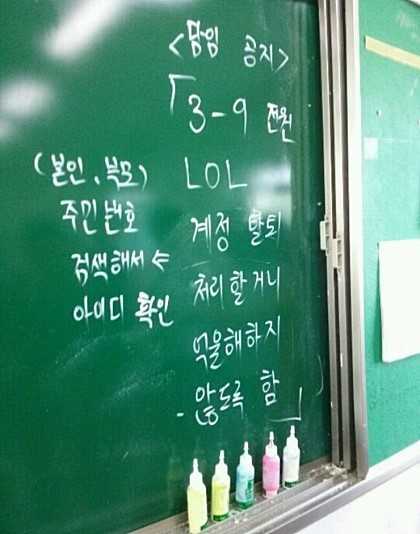 <담임 공지>
「3-9 전원
LOL
계정 탈퇴
처리할거니
억울해하지
않도록 함」
(본인, 부모)
주민번호
검색해서 ⇐
아이디 확인